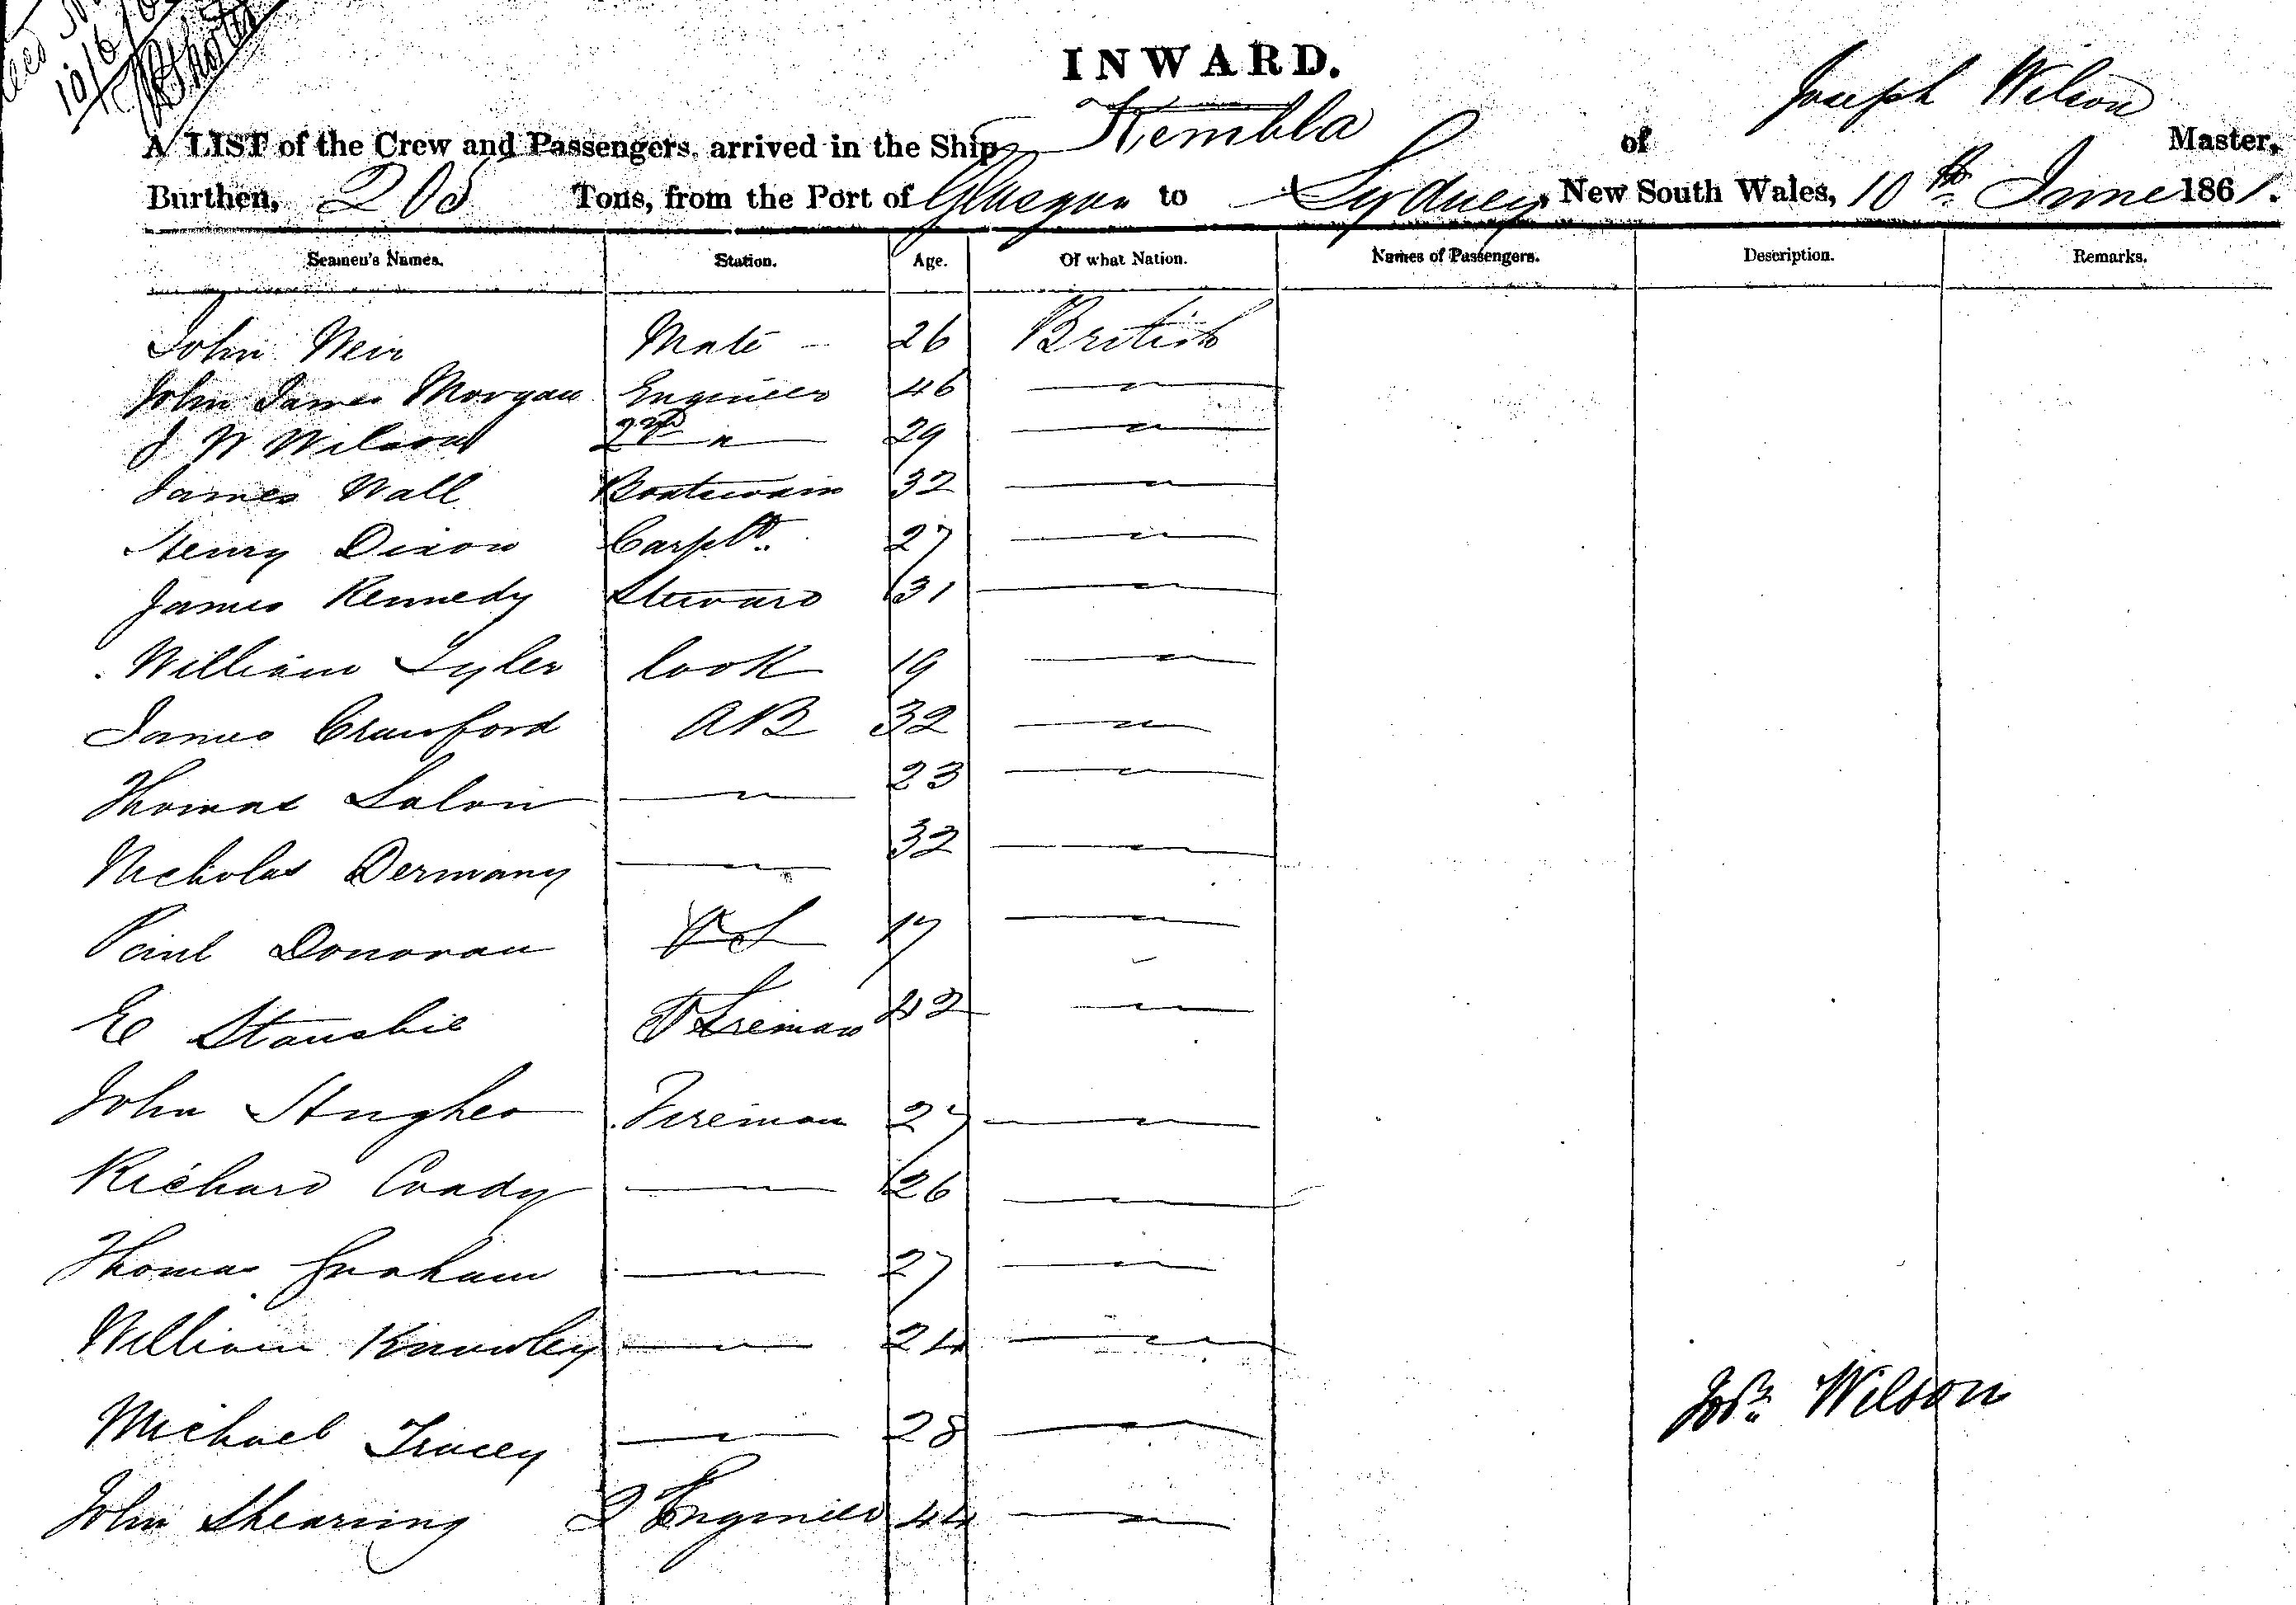 10/6/
INWARD.
A LIST of the Crew and Passengers, arrived in the Ship Kembla of Joseph Wilson Master,
Burthen, 205 Tons, from the Port of Glasgow to Sydney, New South Wales, 10th June 1861.
Seamen's Names. Station. Age. Of what Nation. Names of Passengers. Description. Remarks.
John Weir Mate – 26 British
John James Morgan Engineer 46 — " —
J W Wilson 2nd " — 29 — " —
James Wall Boatswain 32 — " —
Henry Dixon Carptr 27 — " —
James Kennedy Steward 31 — " —
William Tyler Cook 19 — " —
James Crawford AB 32 — " —
Thomas — " — 23 — " —
Nicholas Dermany — " — 32 — " —
Paul Donovan 17 — " —
E Stansbie 42 — " —
John Hughes Fireman 27 — " —
Richard Coady — " — 26 — " —
Thomas Graham — " — 27 — " —
William Knowley — " — 24 — " —
Michael Tracey — " — 28 — " —
John Shearing 2 Engineer 44 — " —
Josh Wilson